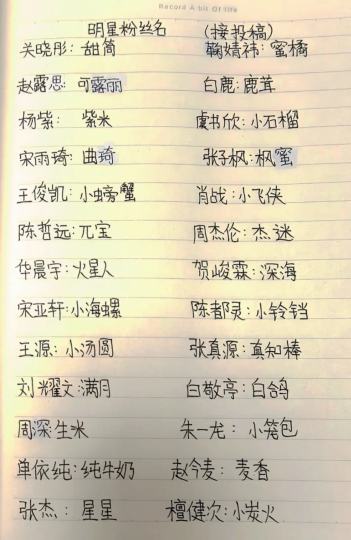 Record A bit Of life
明星粉丝名 (接投稿)
关晓彤: 甜筒 鞠婧祎: 蜜橘
赵露思: 可露丽 白鹿: 鹿茸
杨紫: 紫米 虞书欣: 小石榴
宋雨琦: 曲琦 张子枫: 枫蜜
王俊凯: 小螃蟹 肖战: 小飞侠
陈哲远: 兀宝 周杰伦: 杰迷
华晨宇: 火星人 贺峻霖: 深海
宋亚轩: 小海螺 陈都灵: 小铃铛
王源: 小汤圆 张真源: 真知棒
刘耀文: 满月 白敬亭: 白鸽
周深: 生米 朱一龙: 小笼包
单依纯: 纯牛奶 赵今麦: 麦香
张杰: 星星 檀健次: 小炭火